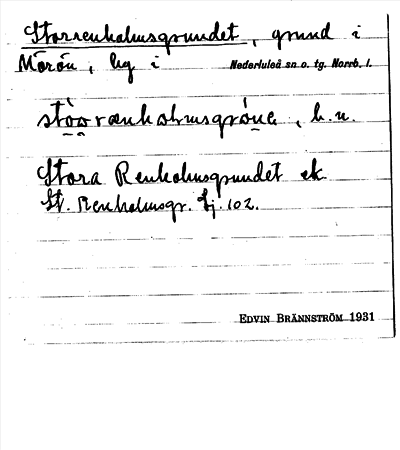 Storrenholmsgrundet, grund i
Mörön, lig i Nederluleå sn o. tg. Norrb. l.
stòorænholmsgróne, b.u.
Stora Renholmsgrundet ek
St. Renholmsgr. Sj. 102.
EDVIN BRÄNNSTRÖM 1931